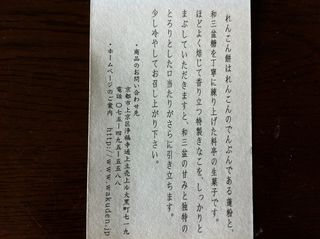 れんこん餅はれんこんのでんぷんである蓮粉と、
和三盆糖を丁寧に練り上げた料亭の生菓子です。
ほどよく焙じて香り立つ特製きなこを、しっかりと
まぶしていただきますと、和三盆の甘みと独特の
とろりとした口当たりがさらに引き立ちます。
少し冷やしてお召し上がり下さい。
・商品のお問い合わせ先
京都市上京区浄福寺通上立売上ル大黒町七一九
電話〇七五-四九五-五五八八
・ホームページのご案内 http://www.wakuden.jp